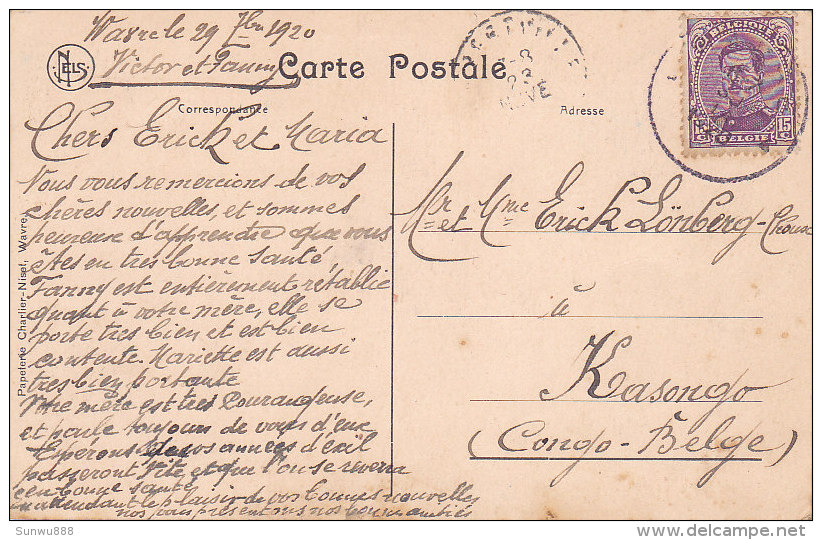 Wavre le 29 7bre 1920
Victor et Fanny
NELS
Carte Postale
Correspondance
Adresse
BELGIQUE
15 15
BELGIE
Chers Erick et Maria
Nous vous remercions de vos
chères nouvelles, et sommes
heureuse d'apprendre que vous
êtes en tres bonne santé
Fanny est entièrement rétablie
quant à votre mère, elle se
porte tres bien et est bien
contente. Mariette est aussi
tres bien portante
Votre mère est tres Courangeuse,
et parle toujours de vous deux
Espérons que vos années d'exil
passeront vite et que l'on se reverra
en bonne santé
en attendant le plaisir de vos bonnes nouvelles
nos, vous présentons nos bonnes amitiés
Mr et Mme Erick Lönberg-
à
Kasongo
(Congo-Belge)
Papeterie Charlier-Niset, Wavre.
Sunwu888
delcampe.net